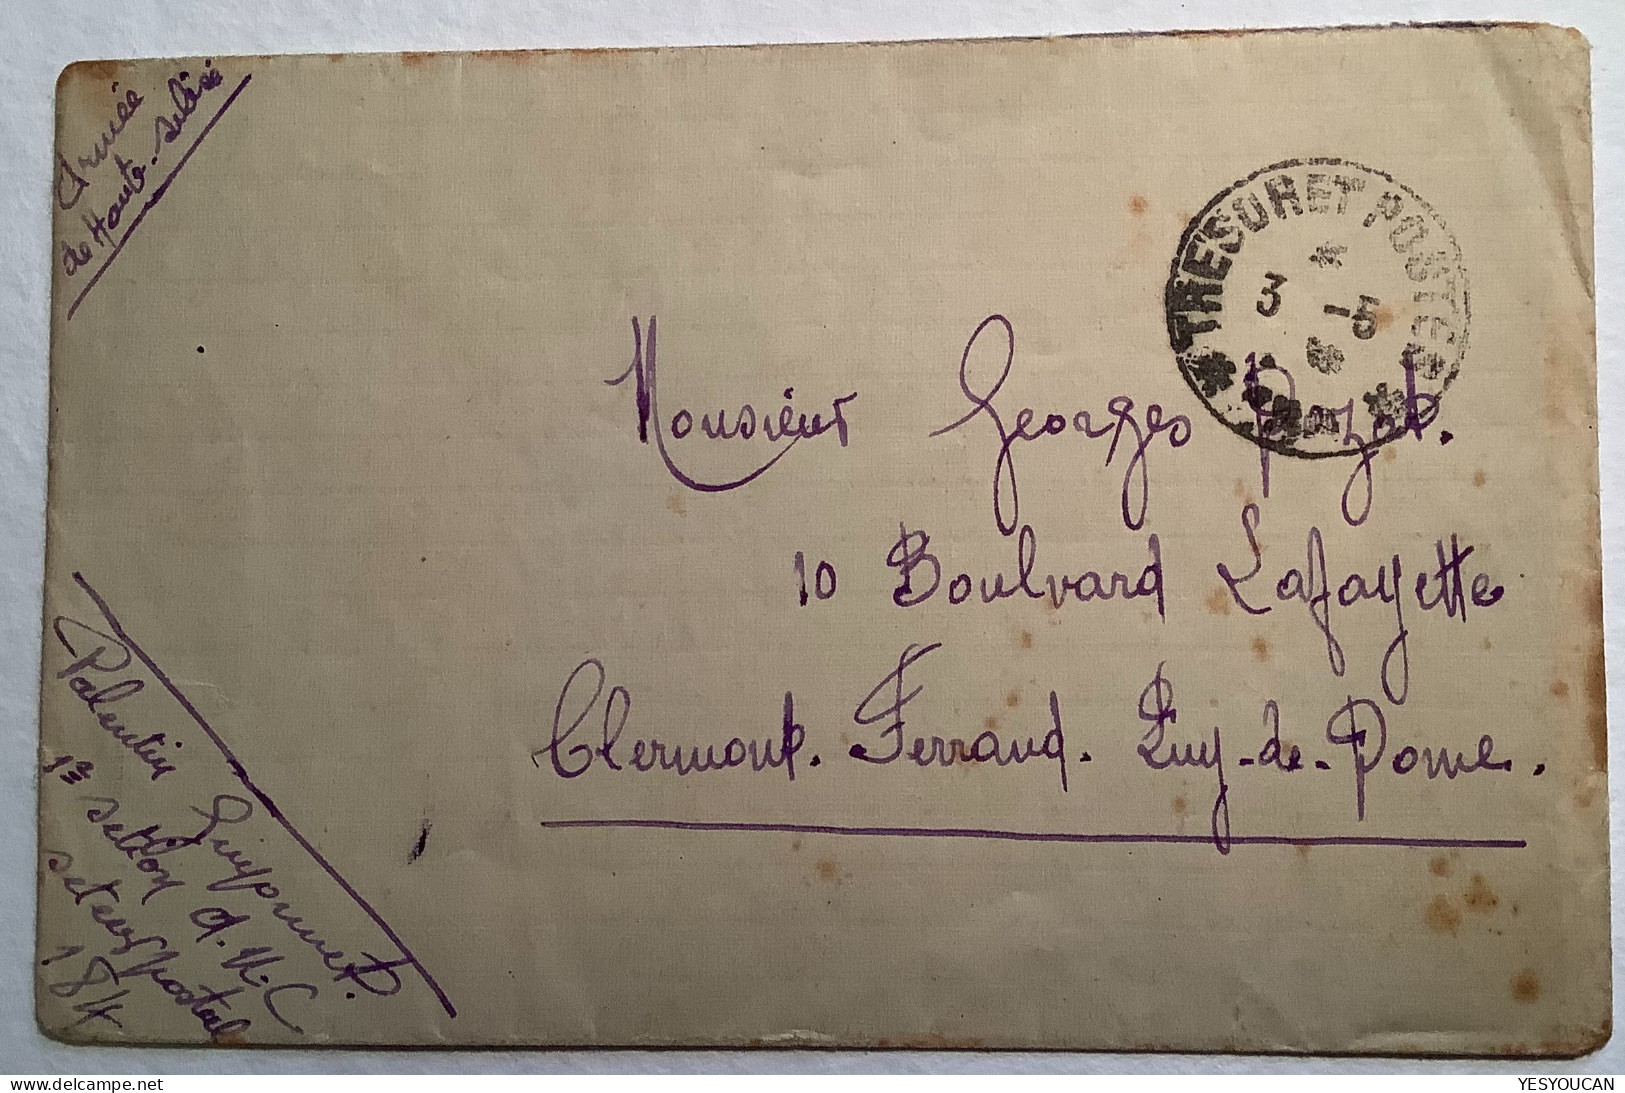 Armée
de Haute-Silésie
TRESOR ET POSTES
3 -5
Monsieur Georges
10 Boulvard Lafayette
Clermont. Ferrand. Puy-de-Dome.
Valentin
13 section
secteur postal
184
YESYOUCAN